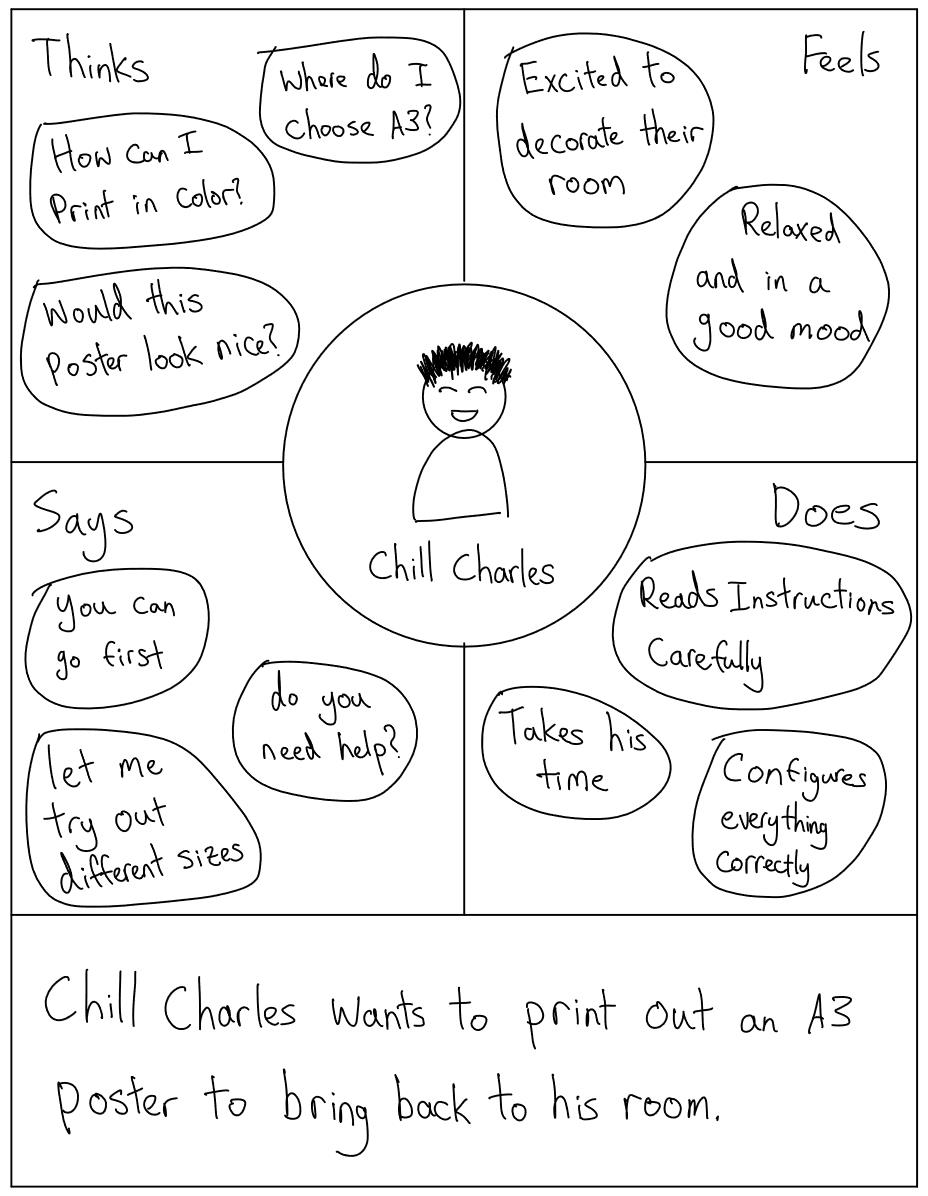 Thinks
Where do I
choose A3?
How can I
Print in color?
Would this
Poster look nice?
Feels
Excited to
decorate their
room
Relaxed
and in a
good mood
Chill Charles
Says
you can
go first
do you
need help?
let me
try out
different sizes
Does
Reads Instructions
Carefully
Takes his
time
Configures
everything
correctly
Chill Charles wants to print out an A3
poster to bring back to his room.